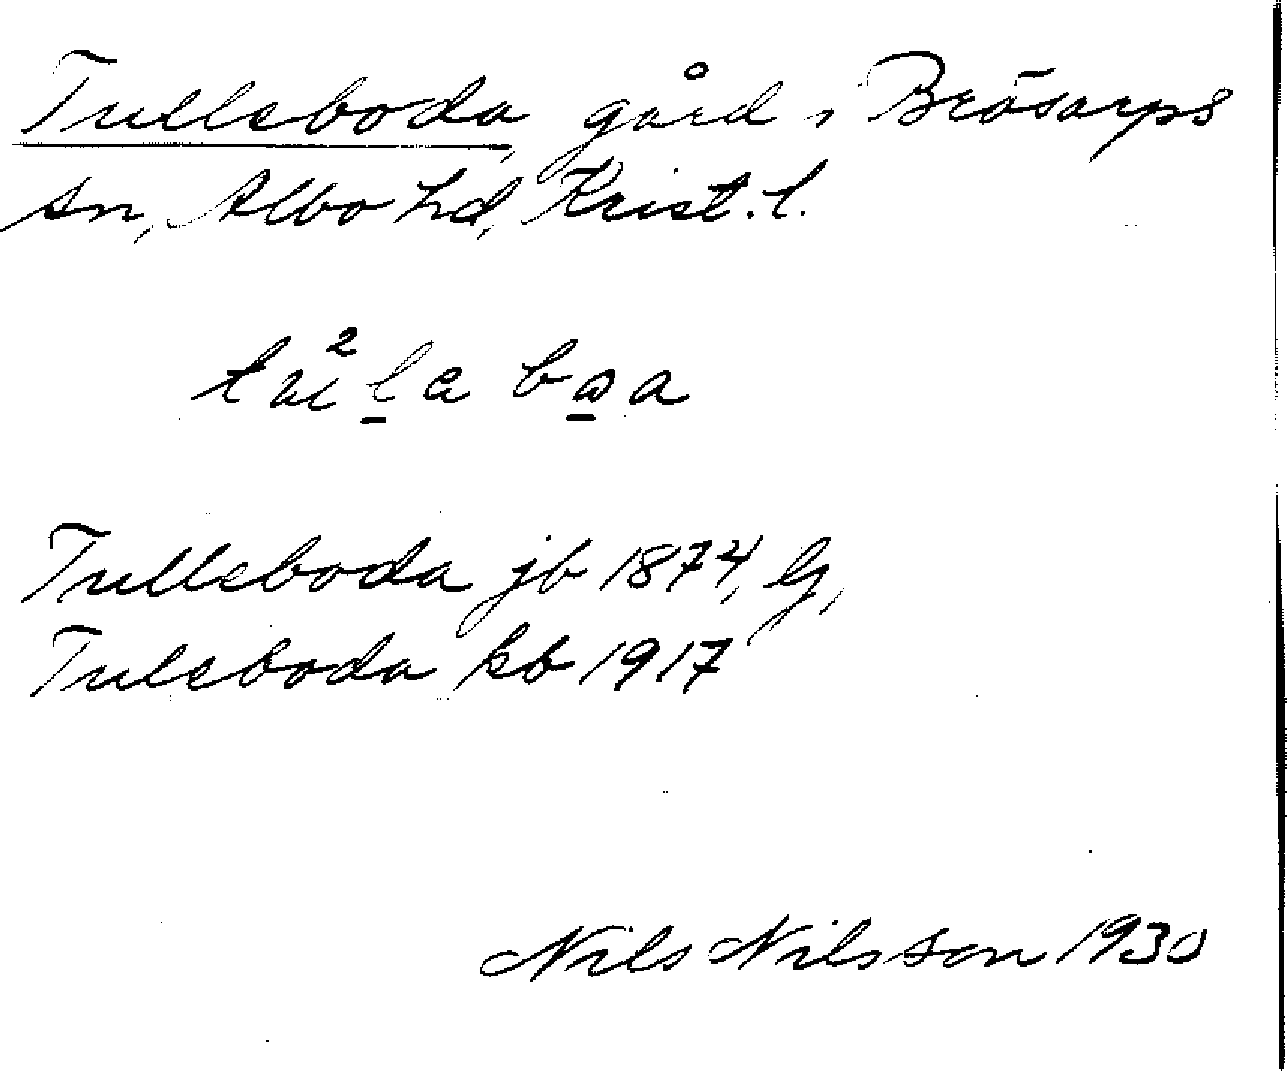 Tulleboda, gård i Brösarps
sn, Albo hd, Krist. l.
Tulleboda jb 1874, G,
Tuleboda kb 1917
Nils Nilsson 1930